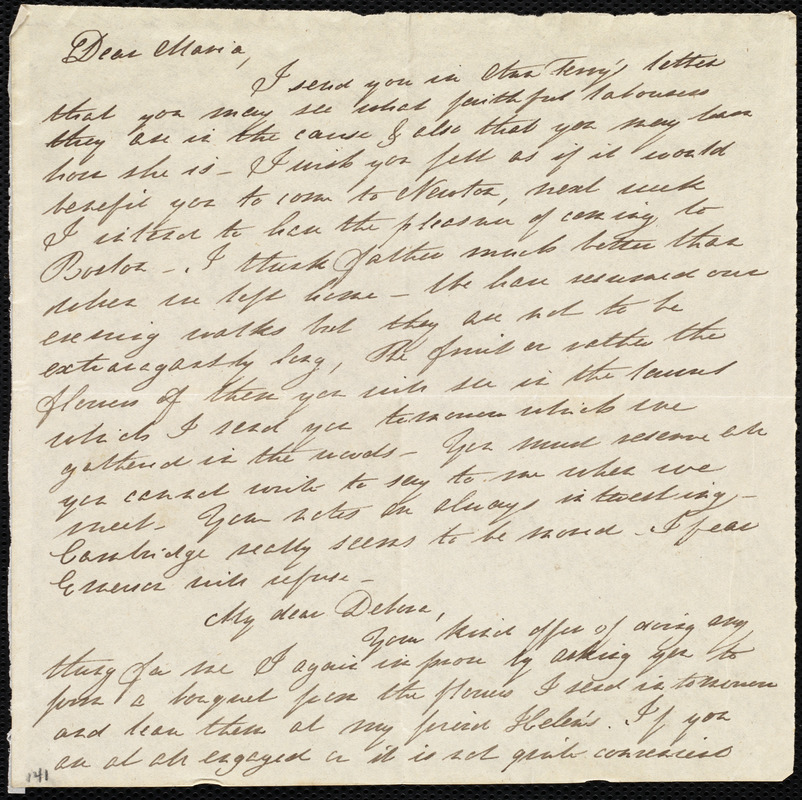 Dear Maria,
I send you in Ann Terry's letter
that you may see what faithful labourers
they are in the cause & also that you may learn
how she is – I wish you felt as if it would
benefit you to come to Newton, next week
I intend to have the pleasure of coming to
Boston – I think father much better than
when we left home – We have resumed our
evening walks but they are not to be
extravagantly long, The fruit or rather the
flowers of them you will see in the laurel
which I send you tomorrow which we
gathered in the woods – You must reserve all
you cannot write to say to me when we
meet – Your notes are always interesting –
Cambridge really seems to be moved – I fear
Emerson will refuse –
My dear Debora,
Your kind offer of doing any
thing for me I again improve by asking you to
form a bouquet from the flowers I send in tomorrow
and leave them at my friend Helen's. If you
are at all engaged or it is not quite convenient
141